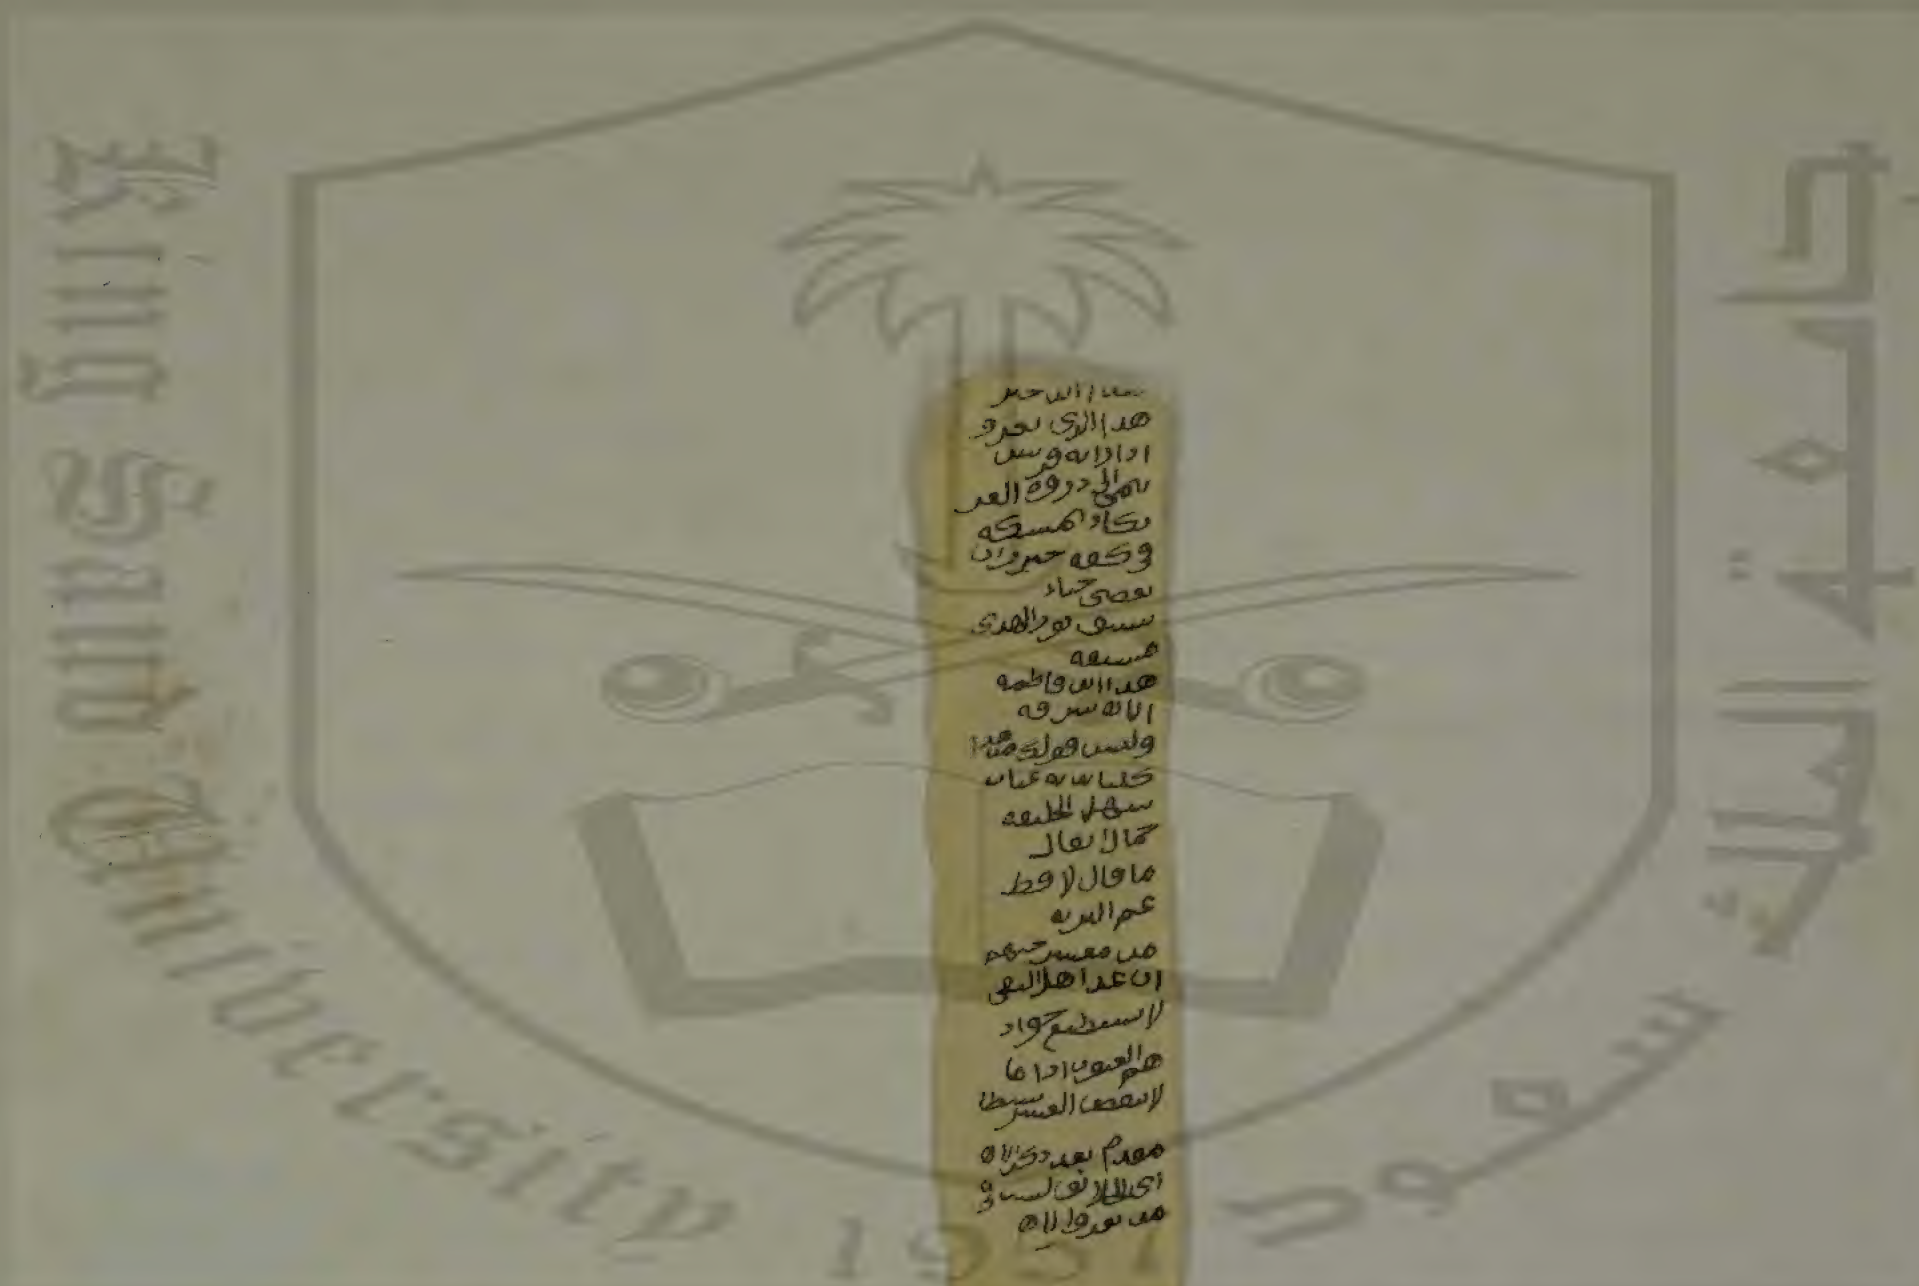 هدا ابن خير
هدا الدى تعرف
ادا راته قريش
ينمى الى دروة العز
يكاد يمسكه
فى كفه خيزران
يغضى حياء
ينشق نور الهدى
مشتقة
هدا ابن فاطمة
الله شرفه
وليس قولك من هدا
كلتا يديه غياث
سهل الخليقة
حمال اثقال
ما قال لا قط
عم البرية
من معشر حبهم
ان عد اهل التقى
لا يستطيع جواد
هم الغيوث ادا ما
لا ينقص العسر بسطا
مقدم بعد دكر الله
اى الخلائق ليست فى
من يعرف الله
King Saud University 1957
جامعة الملك سعود